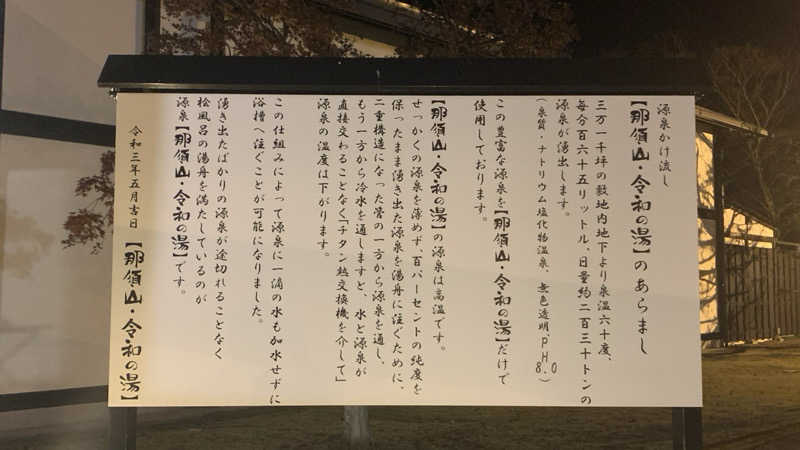 源泉かけ流し
【那須山・令和の湯】のあらまし
三万一千坪の敷地内地下より泉温六十度、
毎分百六十五リットル、日量約二百三十トンの
源泉が湧出します。
(泉質・ナトリウム塩化物温泉、無色透明、pH8.0)
この豊富な源泉を【那須山・令和の湯】だけで
使用しております。
【那須山・令和の湯】の源泉は高温です。
せっかくの源泉を薄めず、百パーセントの純度を
保ったまま湧き出た源泉を湯舟に注ぐために、
二重構造になった管の一方から源泉を通し、
もう一方から冷水を通しますと、水と源泉が
直接交わることなく「チタン熱交換機を介して」
源泉の温度は下がります。
この仕組みによって源泉に一滴の水も加水せずに
浴槽へ注ぐことが可能になりました。
湧き出たばかりの源泉が途切れることなく
桧風呂の湯舟を満たしているのが
源泉【那須山・令和の湯】です。
令和三年五月吉日 【那須山・令和の湯】